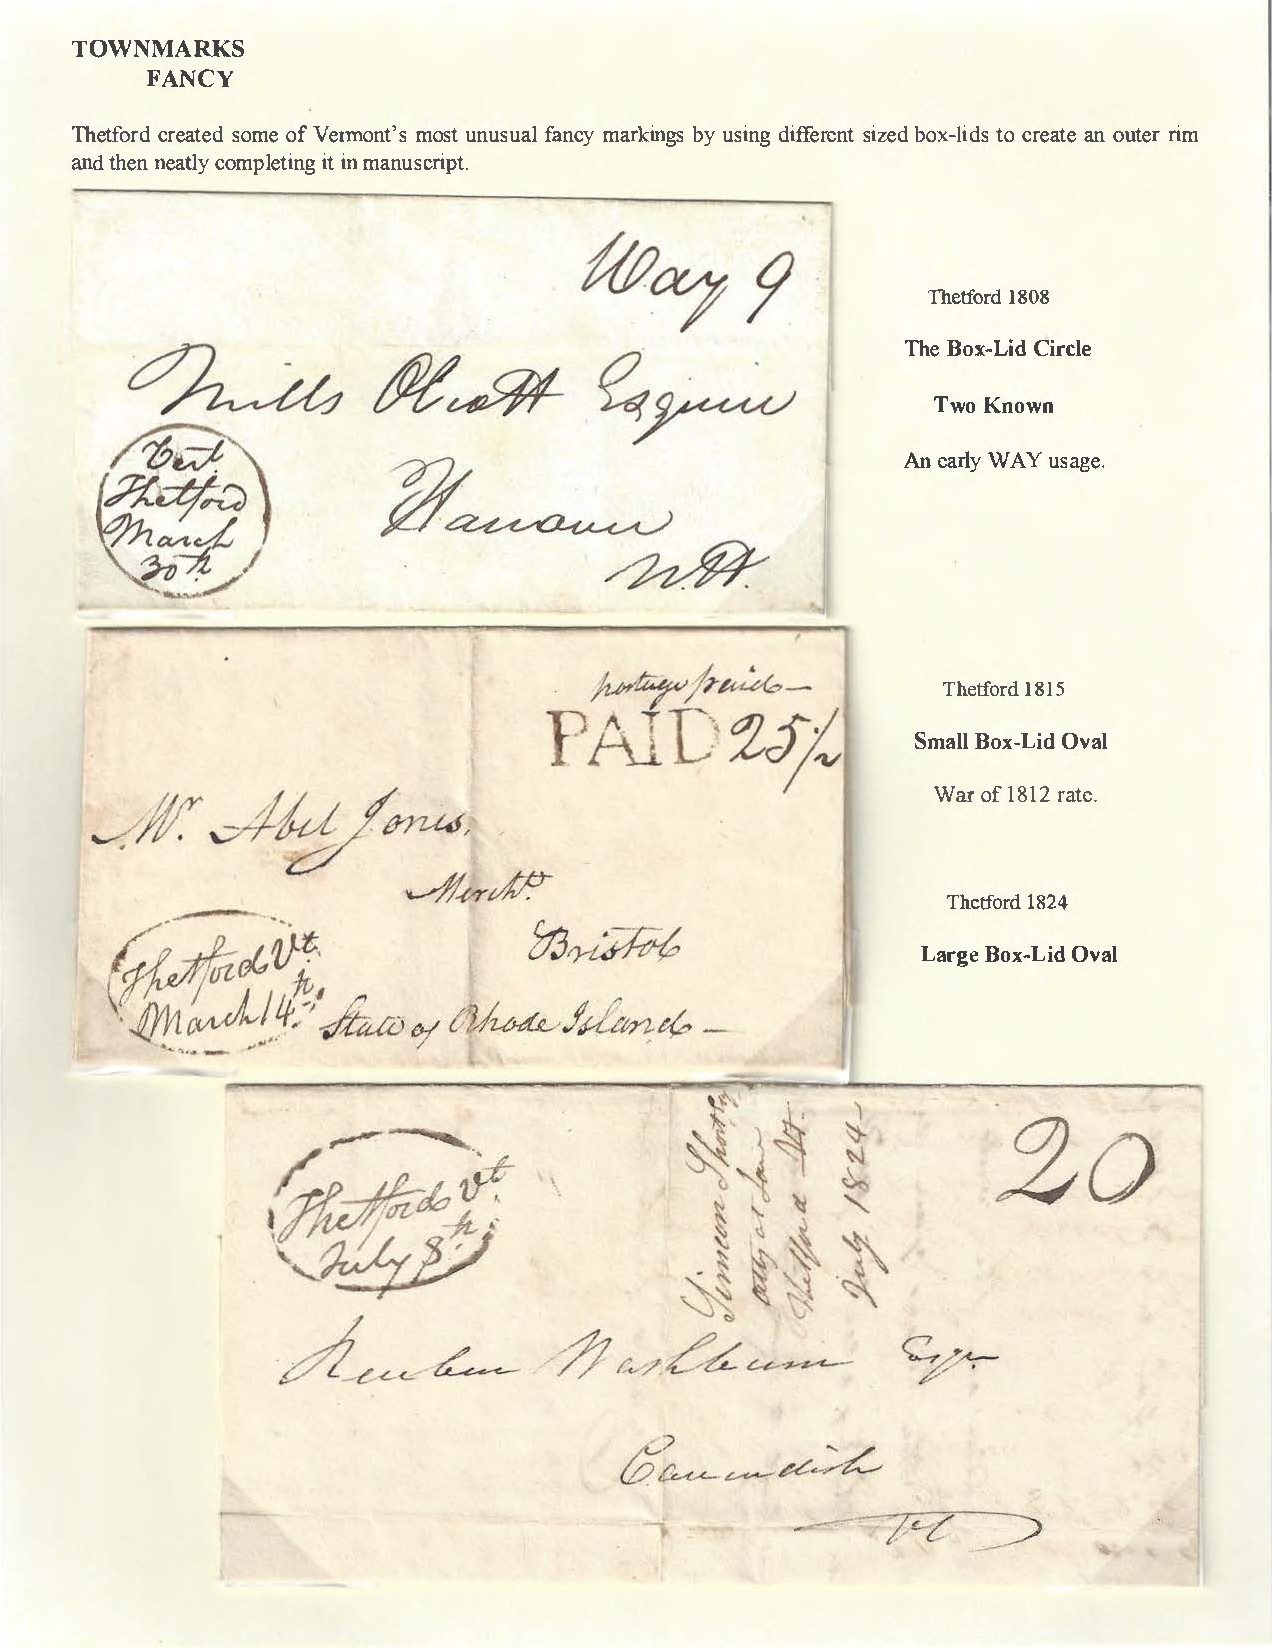 TOWNMARKS
FANCY
Thetford created some of Vermont's most unusual fancy markings by using different sized box-lids to create an outer rim
and then neatly completing it in manuscript.
Way 9
Mills Olcott Esquire
Hanover
N.H.
Vert.
Thetford
March
30th
Thetford 1808
The Box-Lid Circle
Two Known
An early WAY usage.
postage paid—
PAID 25 1/2
Mr. Abel Jones,
Mercht.
Bristol
State of Rhode Island—
Thetford Vt
March 14th
Thetford 1815
Small Box-Lid Oval
War of 1812 rate.
Thetford 1824
Large Box-Lid Oval
Thetford Vt
July 8th
Simeon Short
atty at Law
Thetford Vt.
July 1824
20
Reuben Washburn Esqr
Cavendish
Vt